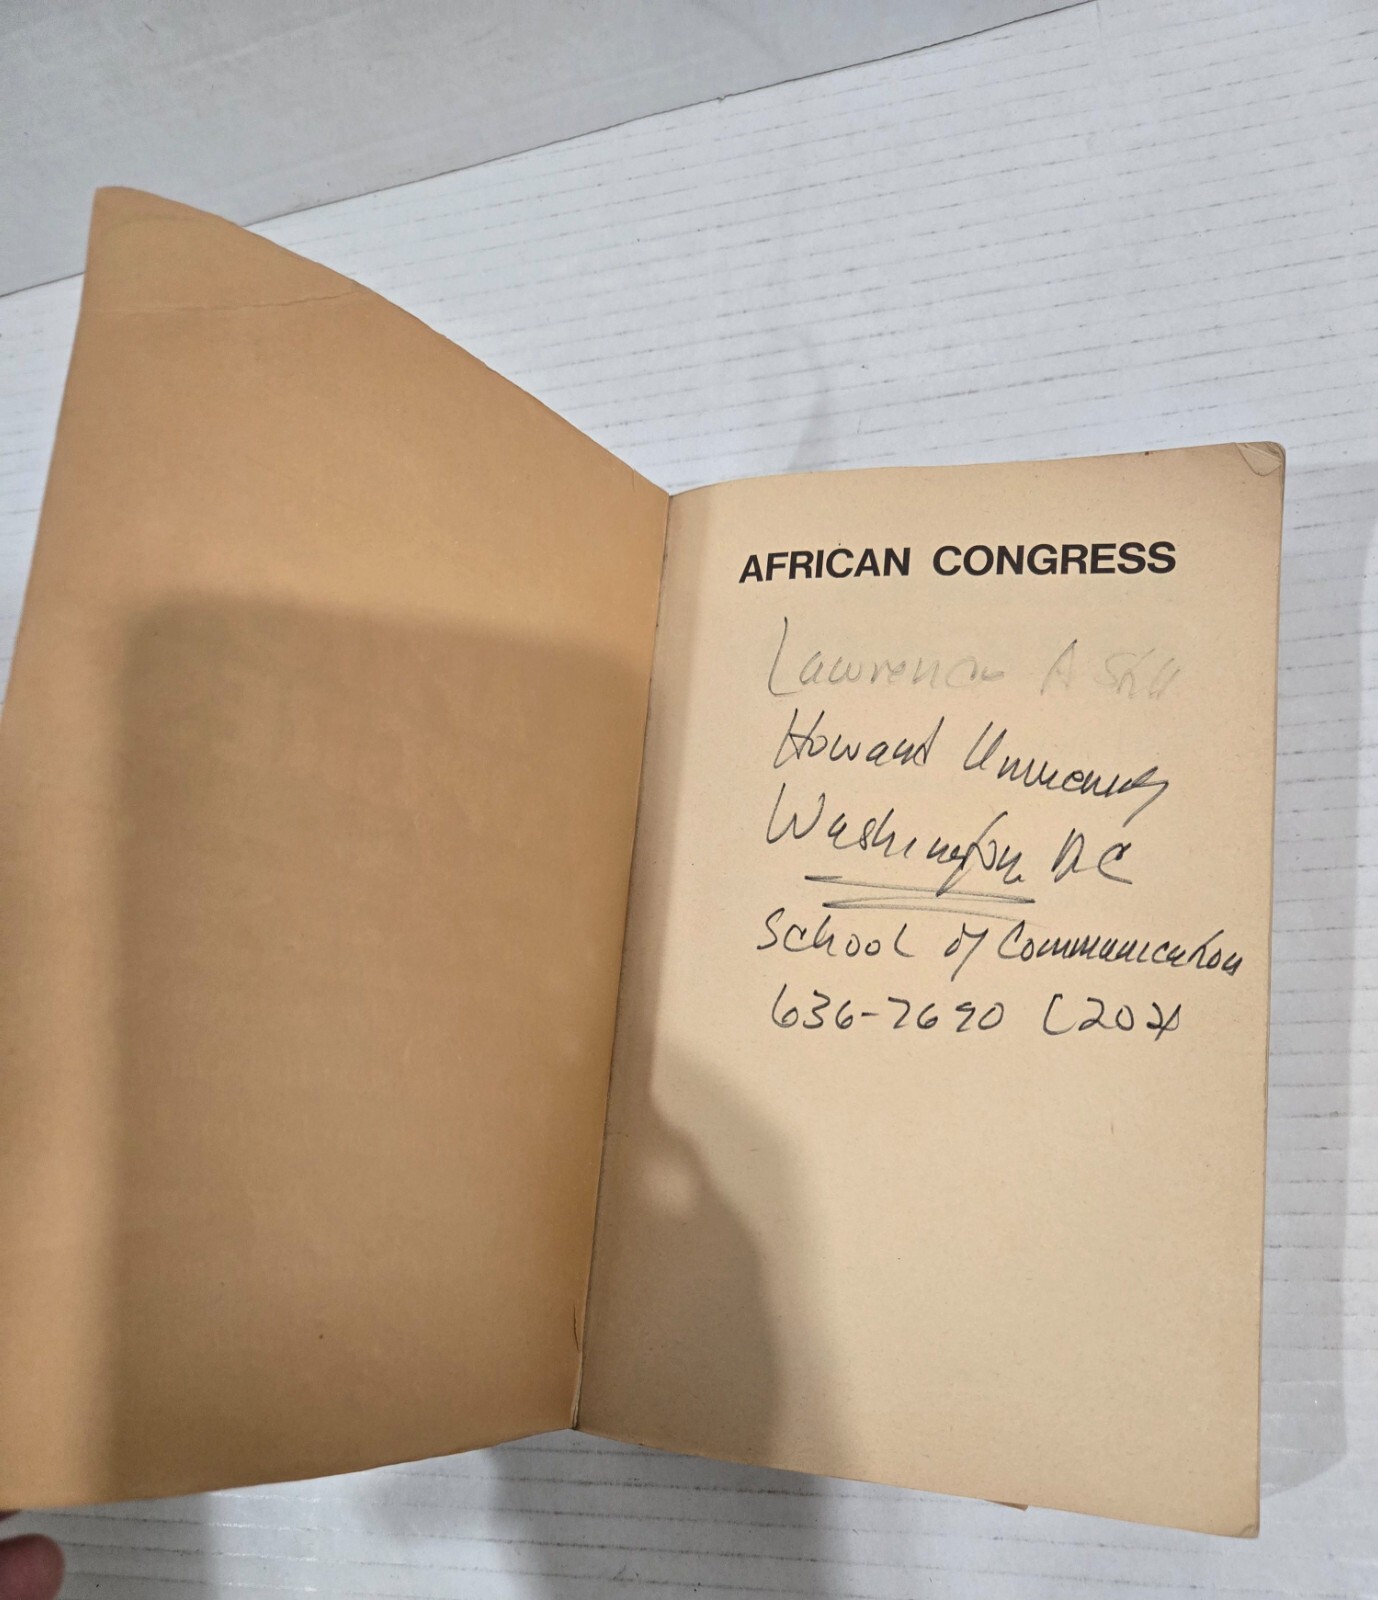 AFRICAN CONGRESS
Lawrence A Still
Howard University
Washington DC
School of Communication
636-7690 (202)